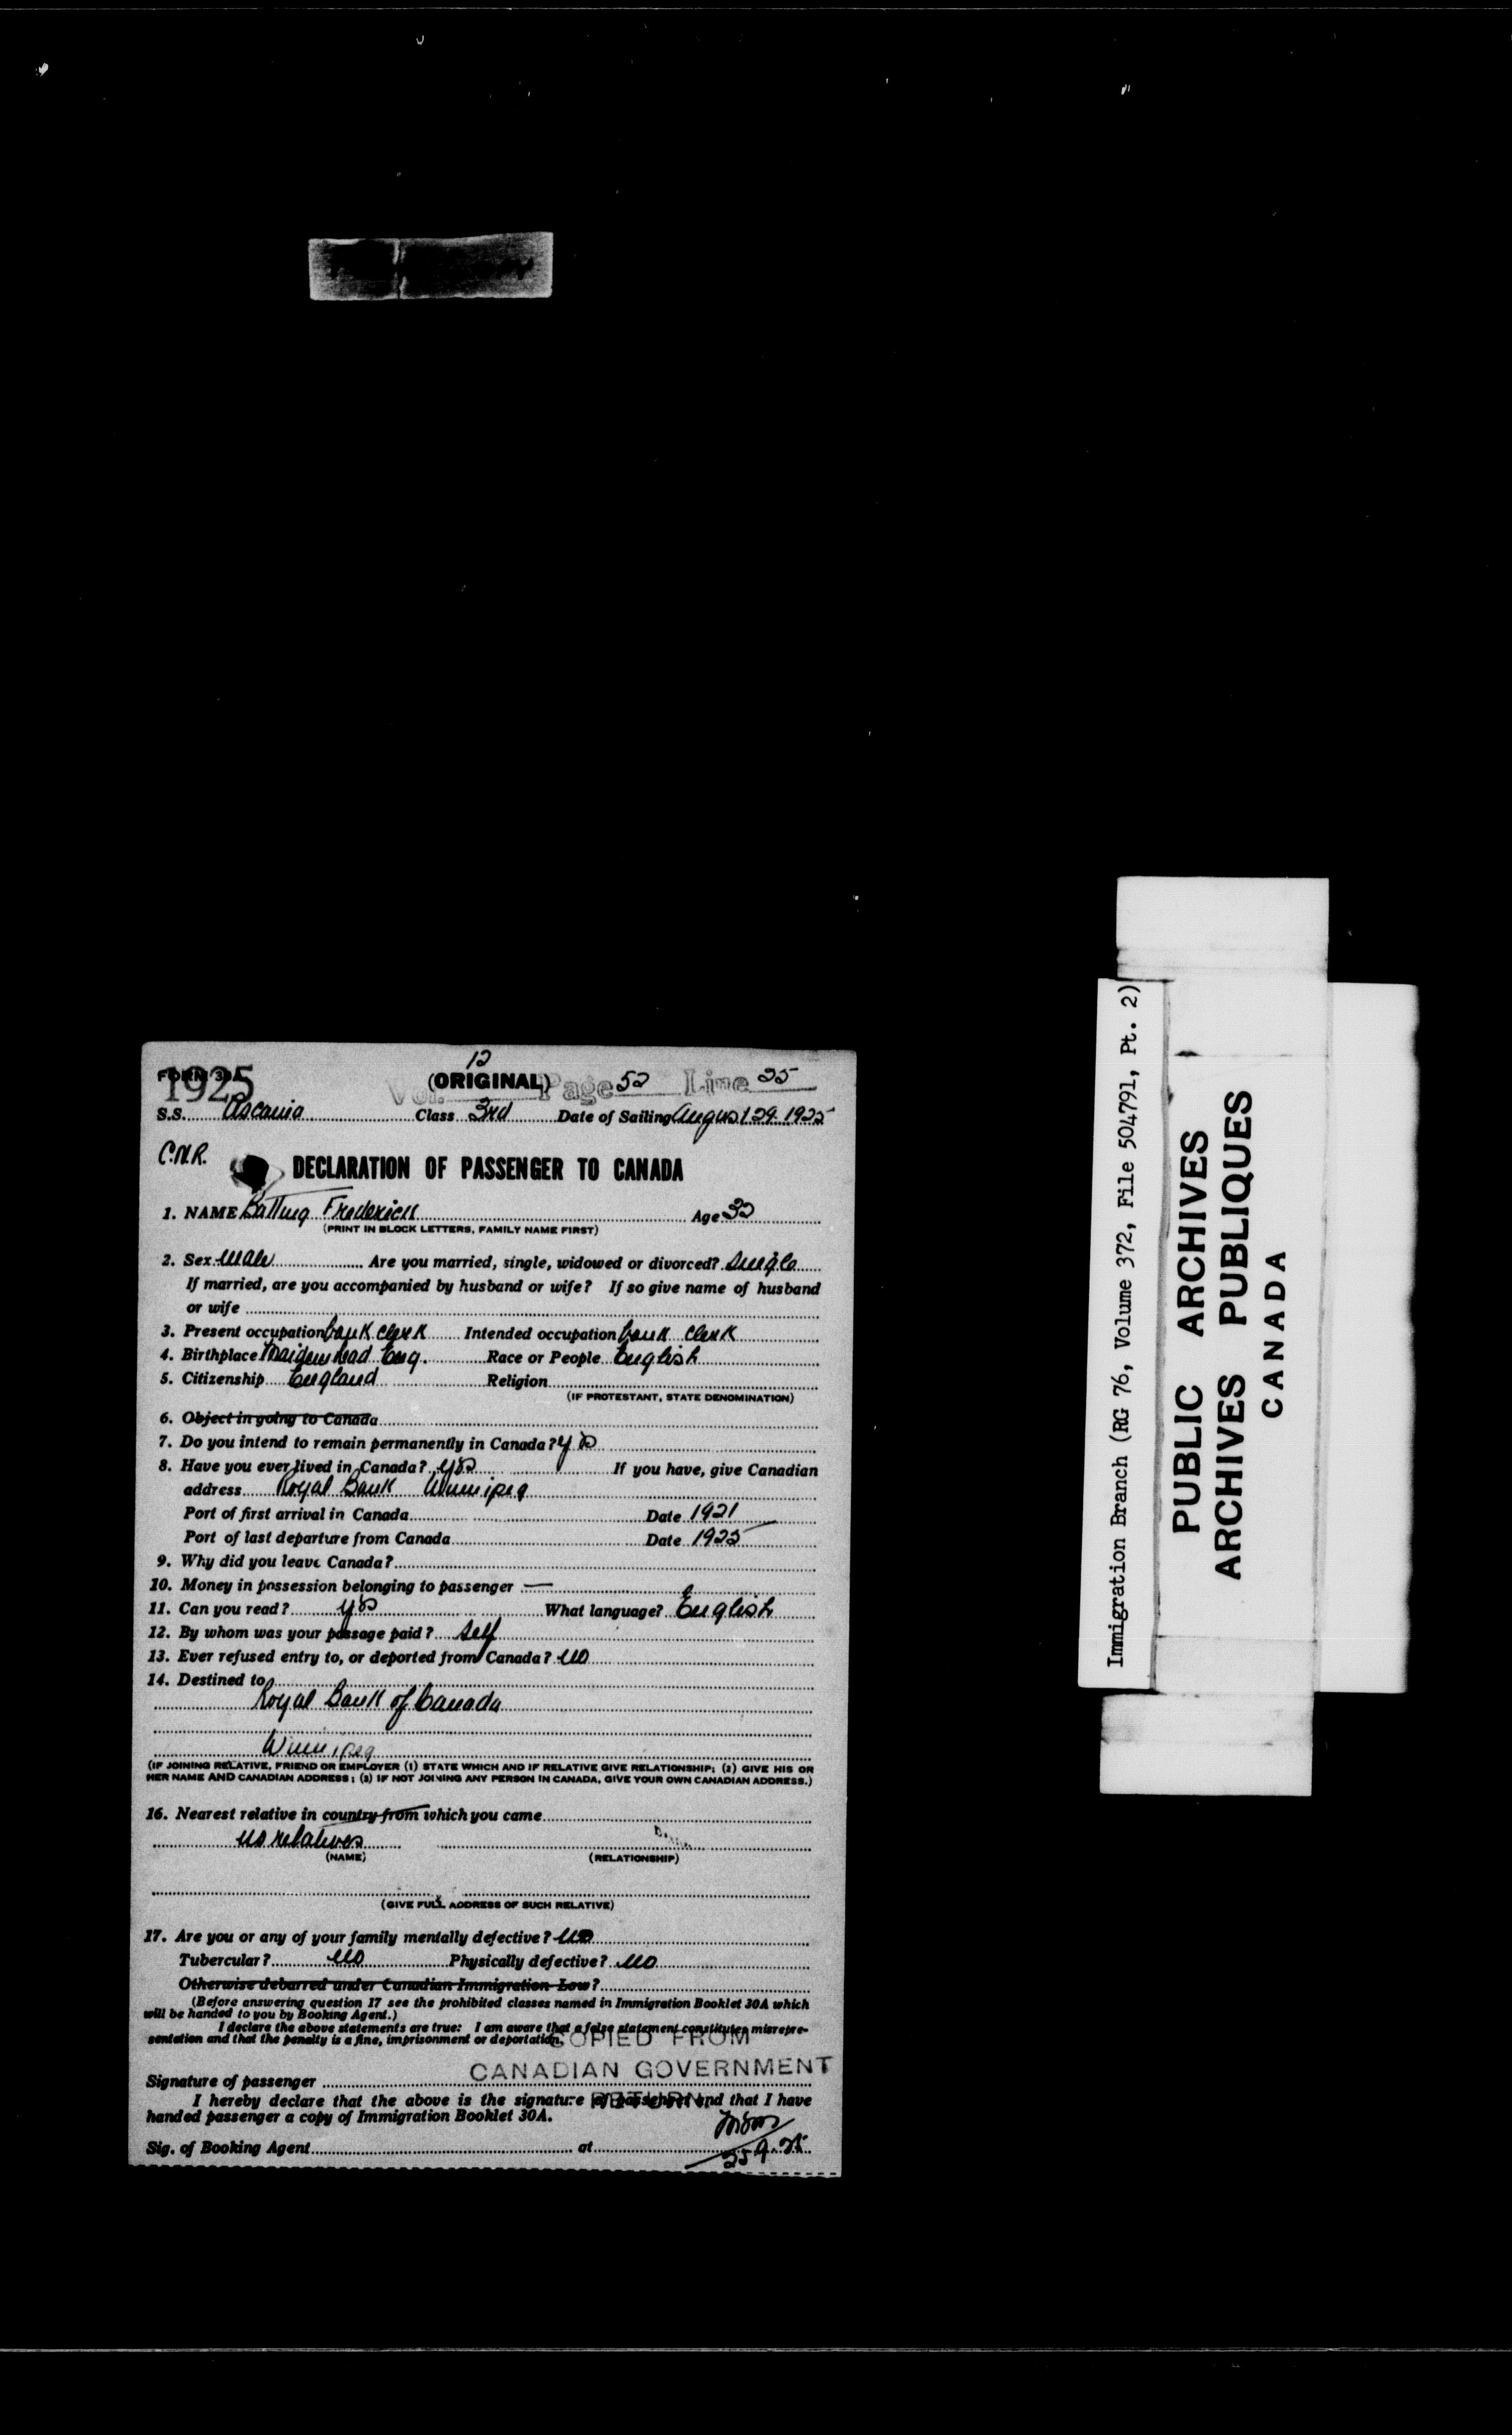 12
FORM 30A 1925 (ORIGINAL) Vol. Page 52 Line 25
S.S. Ascania Class 3rd Date of Sailing August 29 1925
C.N.R.
DECLARATION OF PASSENGER TO CANADA
1. NAME Batting Frederick Age 32
(PRINT IN BLOCK LETTERS, FAMILY NAME FIRST)
2. Sex Male Are you married, single, widowed or divorced? Single
If married, are you accompanied by husband or wife? If so give name of husband
or wife
3. Present occupation bank clerk Intended occupation bank clerk
4. Birthplace Maidenhead Eng. Race or People English
5. Citizenship England Religion
(IF PROTESTANT, STATE DENOMINATION)
6. Object in going to Canada
7. Do you intend to remain permanently in Canada? yes
8. Have you ever lived in Canada? yes If you have, give Canadian
address Royal Bank Winnipeg
Port of first arrival in Canada Date 1921
Port of last departure from Canada Date 1925
9. Why did you leave Canada?
10. Money in possession belonging to passenger —
11. Can you read? yes What language? English
12. By whom was your passage paid? self
13. Ever refused entry to, or deported from Canada? no
14. Destined to
Royal Bank of Canada
Winnipeg
(IF JOINING RELATIVE, FRIEND OR EMPLOYER (1) STATE WHICH AND IF RELATIVE GIVE RELATIONSHIP; (2) GIVE HIS OR
HER NAME AND CANADIAN ADDRESS; (3) IF NOT JOINING ANY PERSON IN CANADA, GIVE YOUR OWN CANADIAN ADDRESS.)
16. Nearest relative in country from which you came
no relatives
(NAME) (RELATIONSHIP)
(GIVE FULL ADDRESS OF SUCH RELATIVE)
17. Are you or any of your family mentally defective? no
Tubercular? no Physically defective? no
Otherwise debarred under Canadian Immigration Law?
(Before answering question 17 see the prohibited classes named in Immigration Booklet 30A which
will be handed to you by Booking Agent.)
I declare the above statements are true: I am aware that a false statement constitutes misrepre-
sentation and that the penalty is a fine, imprisonment or deportation.
COPIED FROM
CANADIAN GOVERNMENT
RETURN
Signature of passenger
I hereby declare that the above is the signature of passenger and that I have
handed passenger a copy of Immigration Booklet 30A.
Sig. of Booking Agent at
25 9. 25
Immigration Branch (RG 76, Volume 372, File 504791, Pt. 2)
PUBLIC ARCHIVES
ARCHIVES PUBLIQUES
CANADA